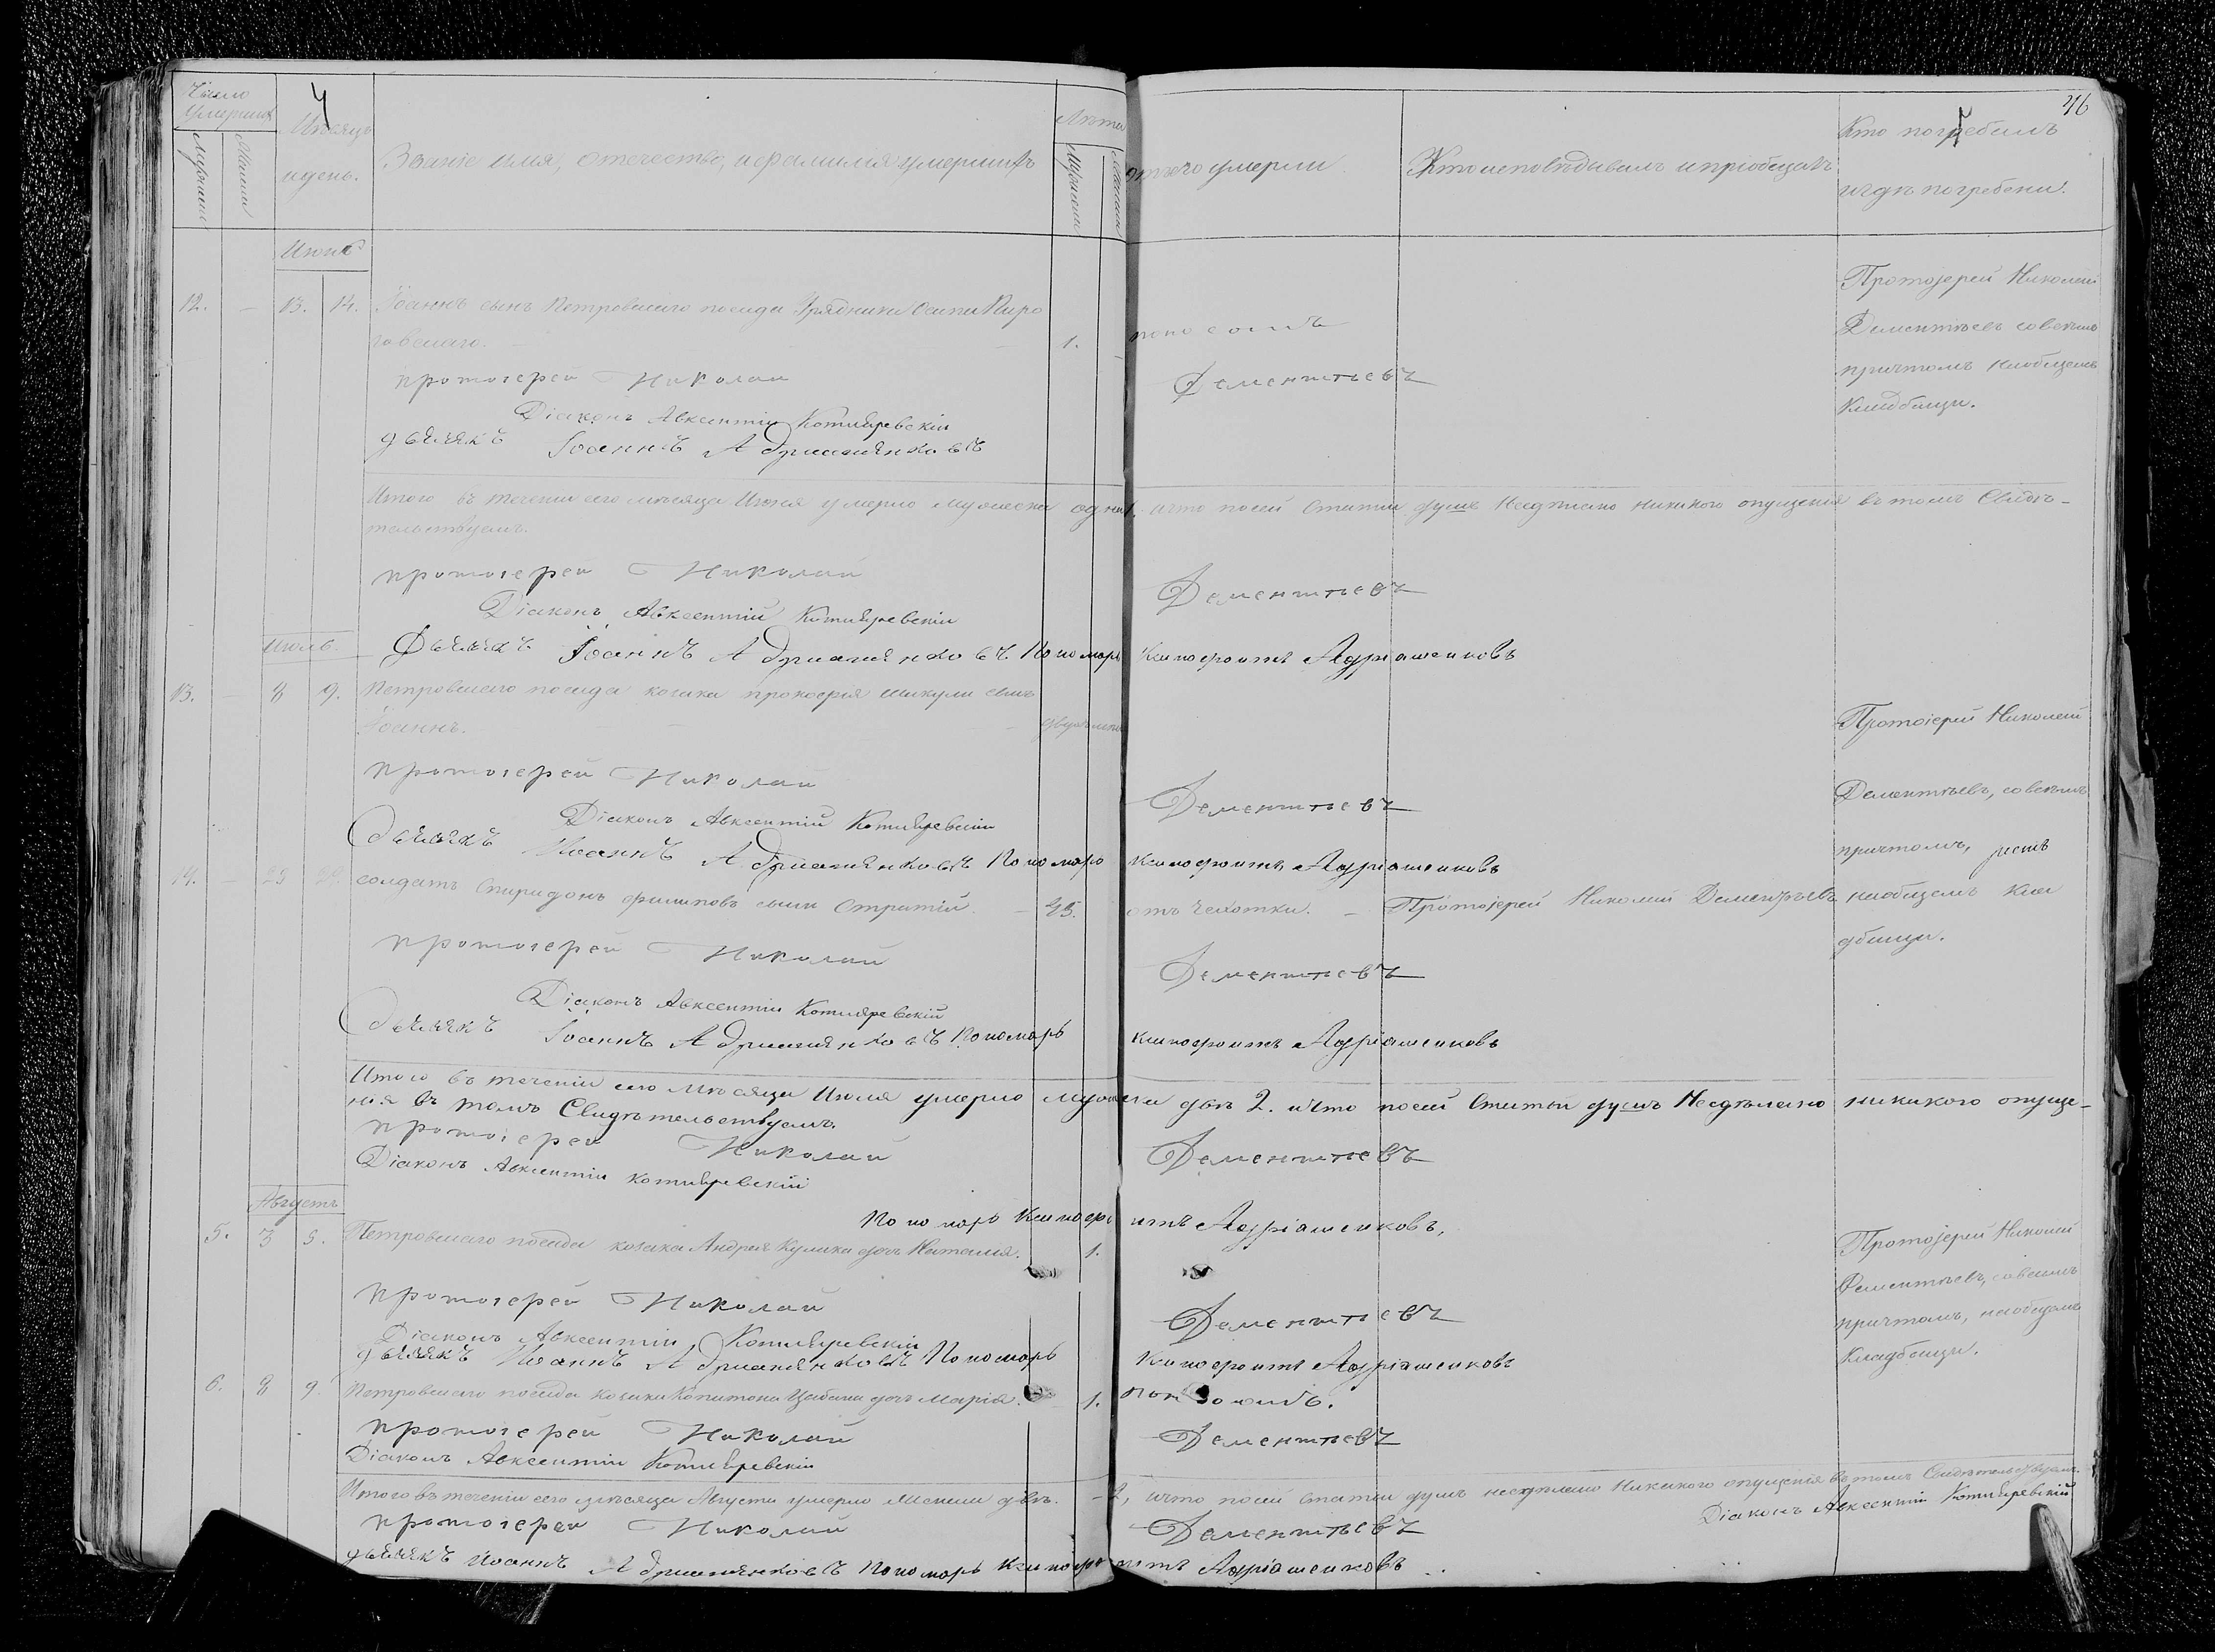 Число умершихъ
Мужеска
Женска
Мѣсяцъ и день.
Званіе имя, отечество, и фамилия умершихъ
Лѣта
Мужеска
Женска
отъ чего умерли
Кто исповѣдывалъ и пріобщалъ
Кто погребалъ
и гдѣ погребены.
Июнь
12. - 13. 14. Іоаннъ сынъ Петровскаго посада Урядника Осипа Пиро
говскаго. 1. поносомъ
Протоіерей Николай
Дементьевъ совсемъ
причтомъ на общемъ
Кладбищи.
протоіерей Николай Дементьевъ
Діаконъ Авксентій Котляревскій
дьячекъ Іоаннъ Адриашенковъ
Итого въ теченіи сего мѣсяца Июня умерло мужеска одна 1. и что посей статьи душъ Несдѣлано никакого опущенія въ томъ Свидѣ-
тельствуемъ.
протоіерей Николай Дементьевъ
Діаконъ Авксентій Котляревскій
Дьячекъ Іоаннъ Адриашенковъ Пономарь Ксенофонтъ Адріашенковъ
Июль.
13. - 8 9. Петровскаго посада козака Прокофія Шикули сынъ
Іоаннъ.
Протоіерей Николай
Дементьевъ, совсемъ
причтомъ,
на общемъ Кла
дбищи.
протоіерей Николай Дементьевъ
Діаконъ Авксентій Котляревскій
Дьячекъ Иоаннъ Адриашенковъ Пономарь Ксенофонтъ Адріашенковъ
14. - солдатъ Спиридонъ Филиповъ сынъ 45. отъ чахотки. - Протоіерей Николай Дементьевъ
протоіерей Николай Дементьевъ
Діаконъ Авксентій Котляревскій
Дьячекъ Іоаннъ Адриашенковъ Пономарь Ксенофонтъ Адріашенковъ
Итого въ теченіи сего мѣсяца Июля умерло мужеска двѣ 2. и что посей Статьи душъ Несдѣлано никакого опуще-
нія въ томъ Свидѣтельствуемъ.
протоіерей Николай Дементьевъ
Діаконъ Авксентій Котляревскій
Пономарь Ксенофонтъ Адріашенковъ,
Августъ
5. 3 5. Петровскаго посада козака Андрея Кулика дочь Наталія. 1.
Протоіерей Николай
Дементьевъ, совсемъ
причтомъ, на общемъ
Кладбищи.
протоіерей Николай Дементьевъ
Діаконъ Авксентій Котляревскій
дьячекъ Иоаннъ Адриашенковъ Пономарь Ксенофонтъ Адріашенковъ
6. 8 9. Петровскаго посада козака Капитона Цыбани дочь Марія. 1.
протоіерей Николай Дементьевъ
Діаконъ Авксентій Котляревскій
Итого въ теченіи сего мѣсяца Августа умерло Женска двѣ. - 2, и что посей статьи душъ несдѣлано Никакого опущенія въ томъ Свидѣтельствуемъ.
протоіерей Николай Дементьевъ
Діаконъ Авксентій Котляревскій
дьячекъ Иоаннъ Адриашенковъ Пономарь Ксенофонтъ Адріашенковъ